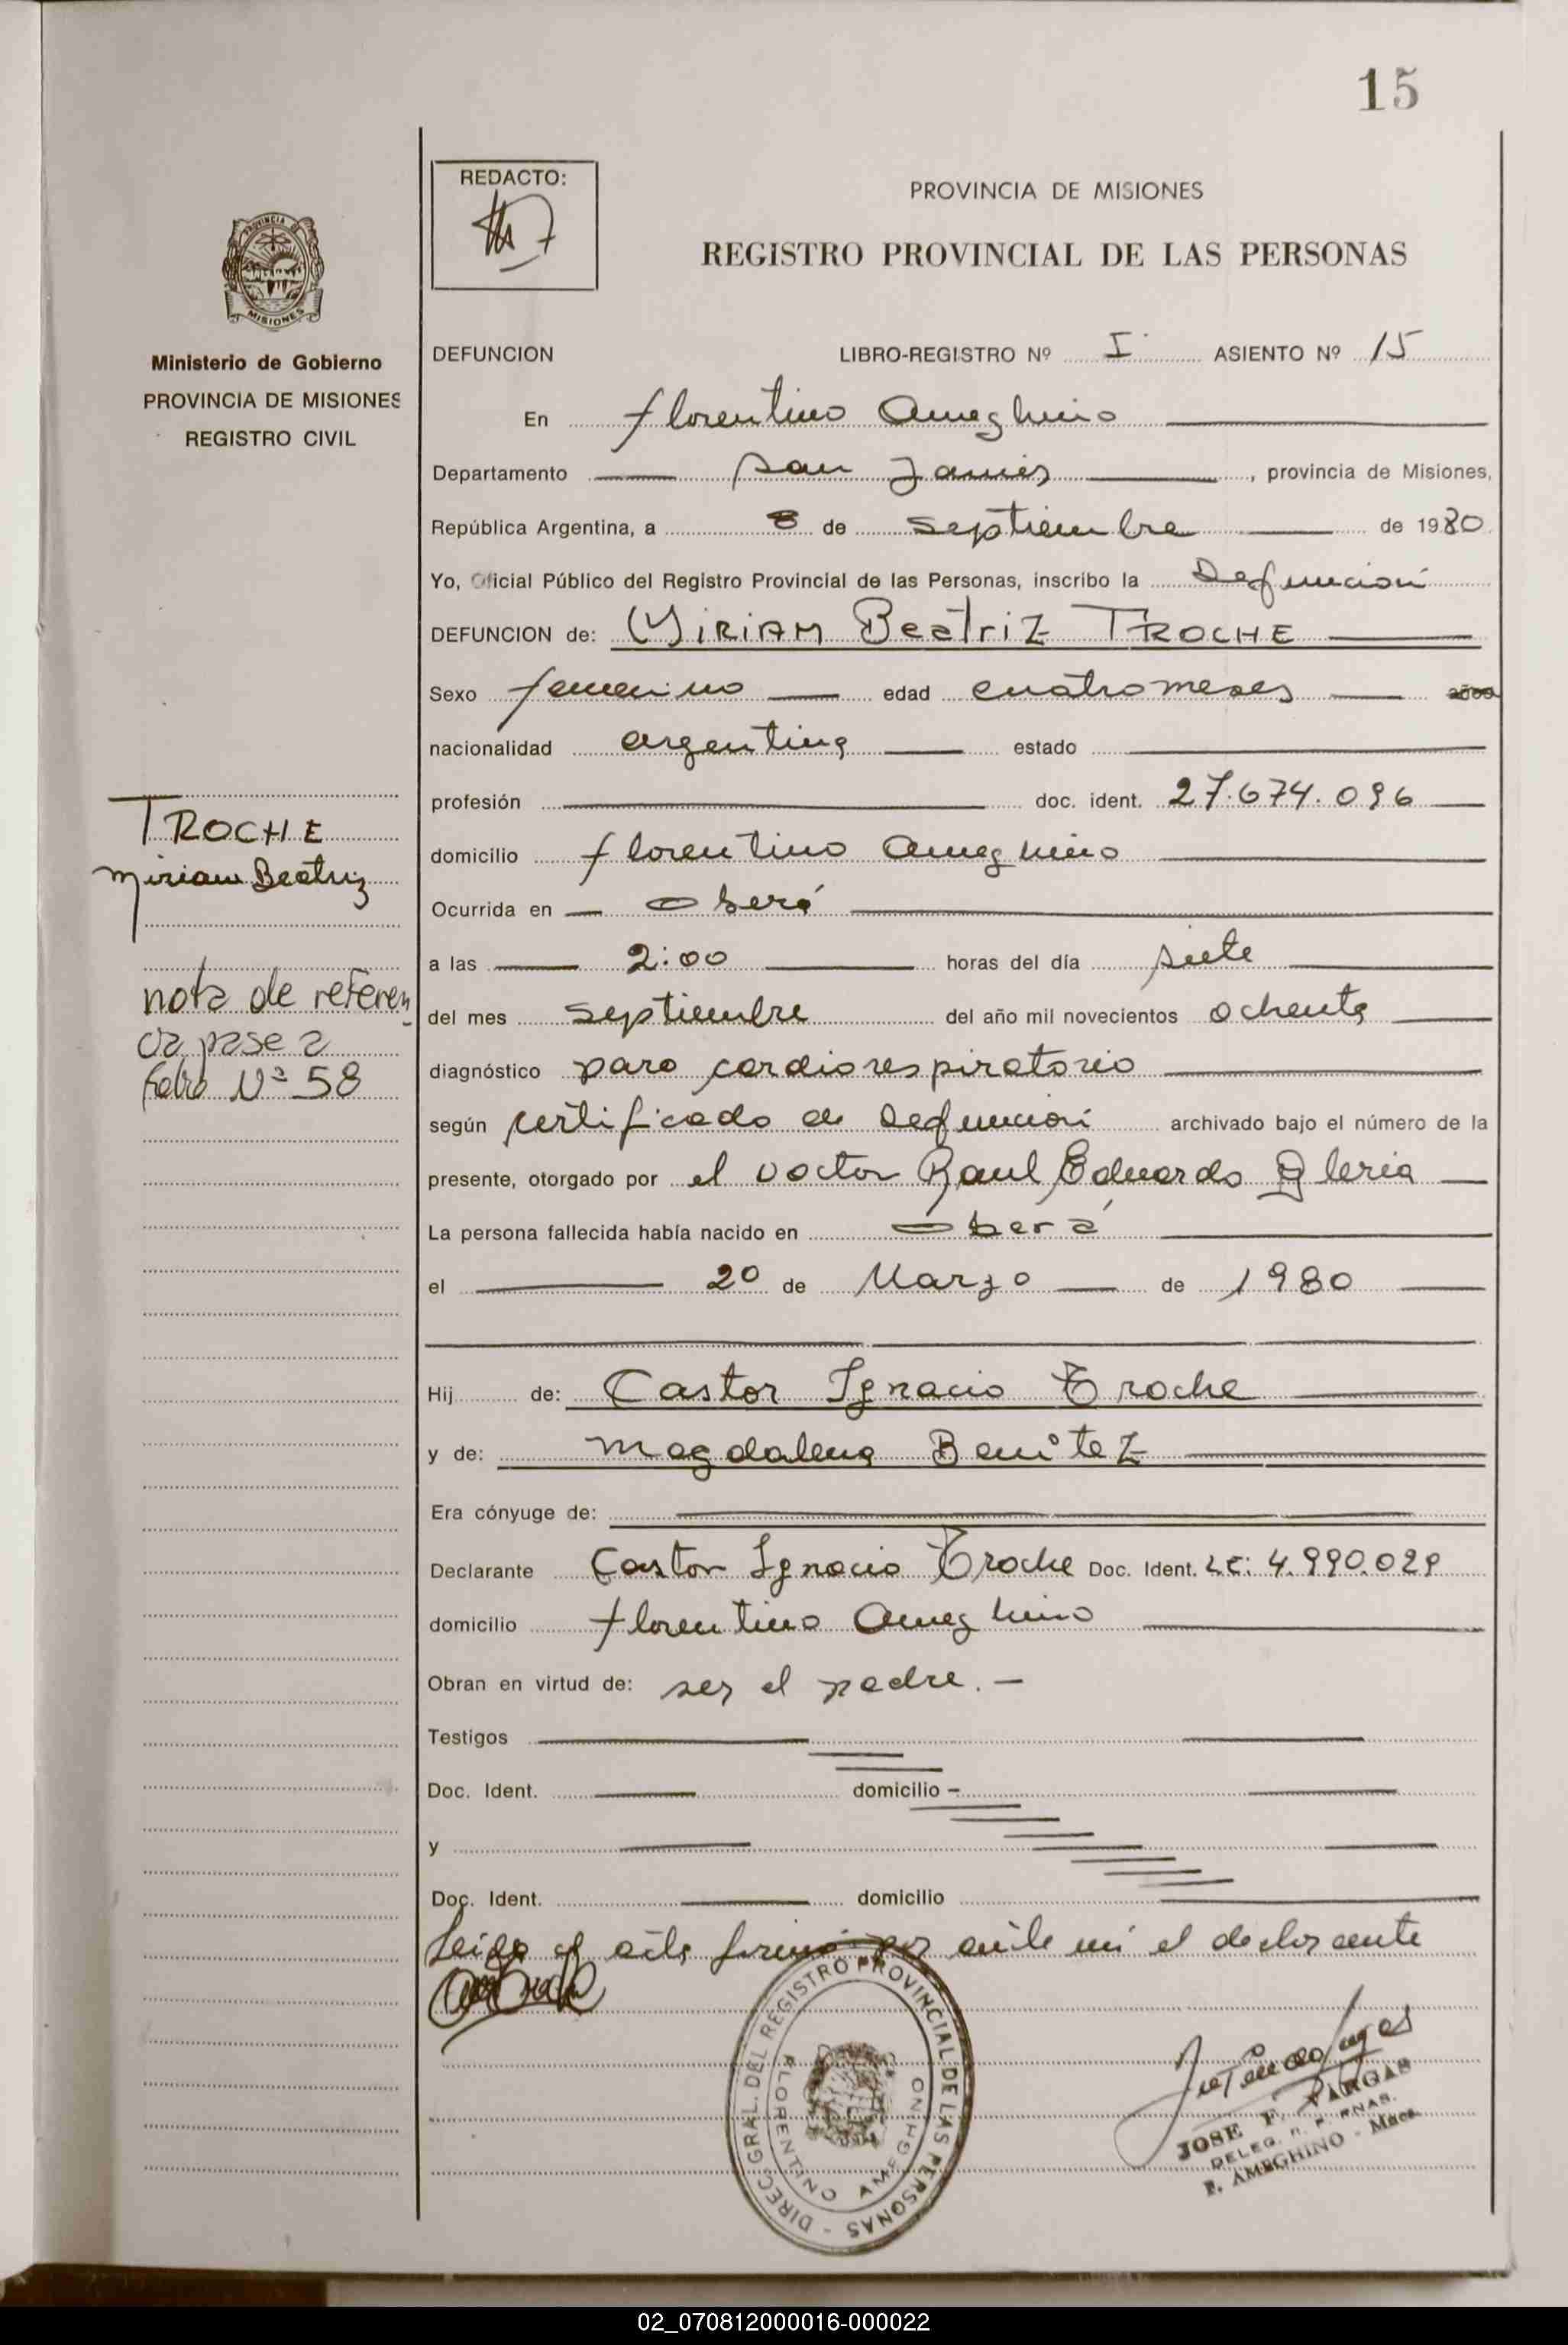 15
REDACTO:
PROVINCIA DE MISIONES
REGISTRO PROVINCIAL DE LAS PERSONAS
PROVINCIA
MISIONES
Ministerio de Gobierno
PROVINCIA DE MISIONES
REGISTRO CIVIL
DEFUNCION LIBRO-REGISTRO Nº I ASIENTO Nº 15
En florentino ameghino
Departamento san Javier, provincia de Misiones,
República Argentina, a 8 de septiembre de 1980
Yo, Oficial Público del Registro Provincial de las Personas, inscribo la Defunción
DEFUNCION de: MIRIAM BeatriZ TROCHE
Sexo femenino edad cuatro meses años
nacionalidad argentina estado
profesión doc. ident. 27.674.096
domicilio florentino ameghino
Ocurrida en Oberá
a las 2:00 horas del día siete
del mes septiembre del año mil novecientos ochenta
diagnóstico paro cardiorespiratorio
según certificado de Defunción archivado bajo el número de la
presente, otorgado por el Doctor Raul Eduardo
La persona fallecida había nacido en Oberá
el 20 de Marzo de 1980
Hij de: Castor Ignacio Troche
y de: Magdalena BeniteZ
Era cónyuge de:
Declarante Castor Ignacio Troche Doc. Ident. LE: 4.990.029
domicilio florentino ameghino
Obran en virtud de: ser el padre. —
Testigos
Doc. Ident. domicilio
y
Doc. Ident. domicilio
Leida el acta firmó por ante mi el declarante
TROCHE
Miriam Beatriz
nota de referen
cia pase a
folio Nº 58
DIREC. GRAL. DEL REGISTRO PROVINCIAL DE LAS PERSONAS -
FLORENTINO AMEGHINO
JOSE F. VARGAS
DELEG. R. P. PNAS.
F. AMEGHINO - Mnes.
02_070812000016-000022